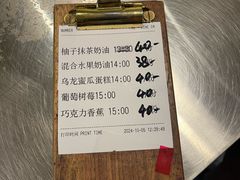 NUMBER
柚子抹茶奶油 13:00 40.-
混合水果奶油14:00 38.-
乌龙蜜瓜蛋糕14:00 40.-
葡萄树莓15:00 40.-
巧克力香蕉 15:00 40.-
打印时间 PRINT TIME 2024-11-05 12:39:49